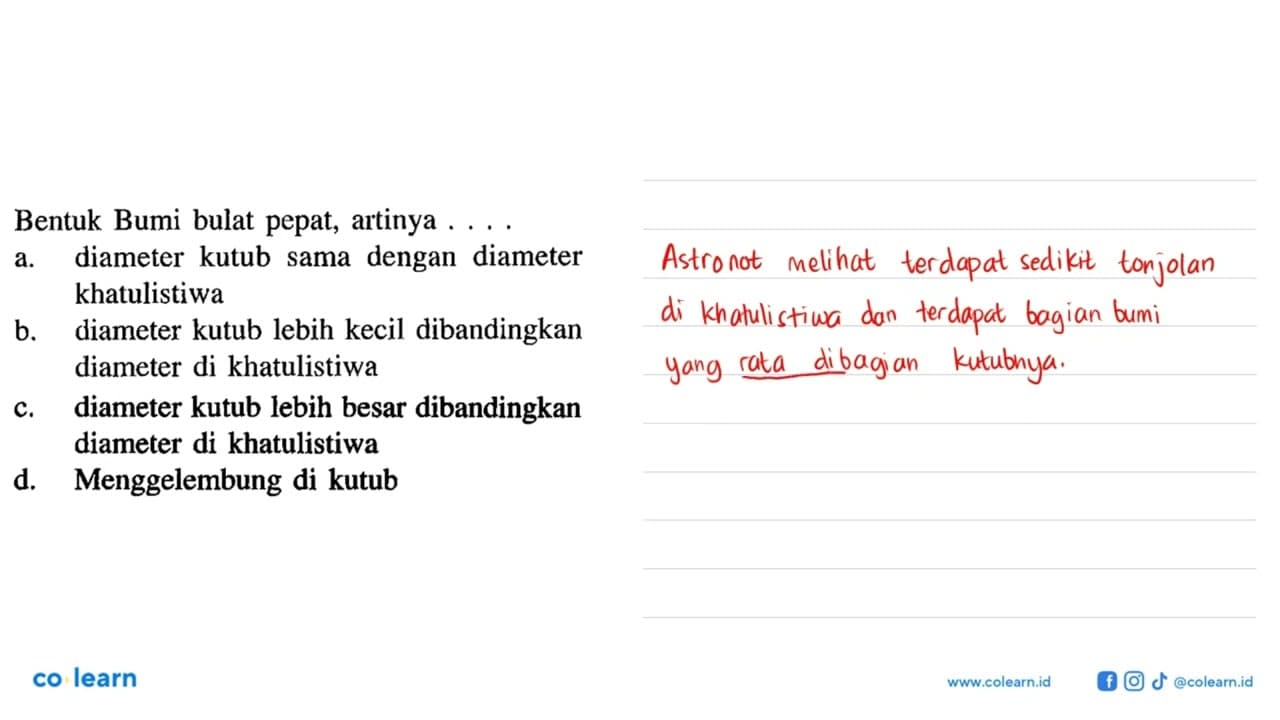 Bentuk Bumi bulat pepat, artinya . . . .
a. diameter kutub sama dengan diameter
khatulistiwa
b. diameter kutub lebih kecil dibandingkan
diameter di khatulistiwa
c. diameter kutub lebih besar dibandingkan
diameter di khatulistiwa
d. Menggelembung di kutub
Astronot melihat terdapat sedikit tonjolan
di khatulistiwa dan terdapat bagian bumi
yang rata dibagian kutubnya.
co learn
www.colearn.id
@colearn.id